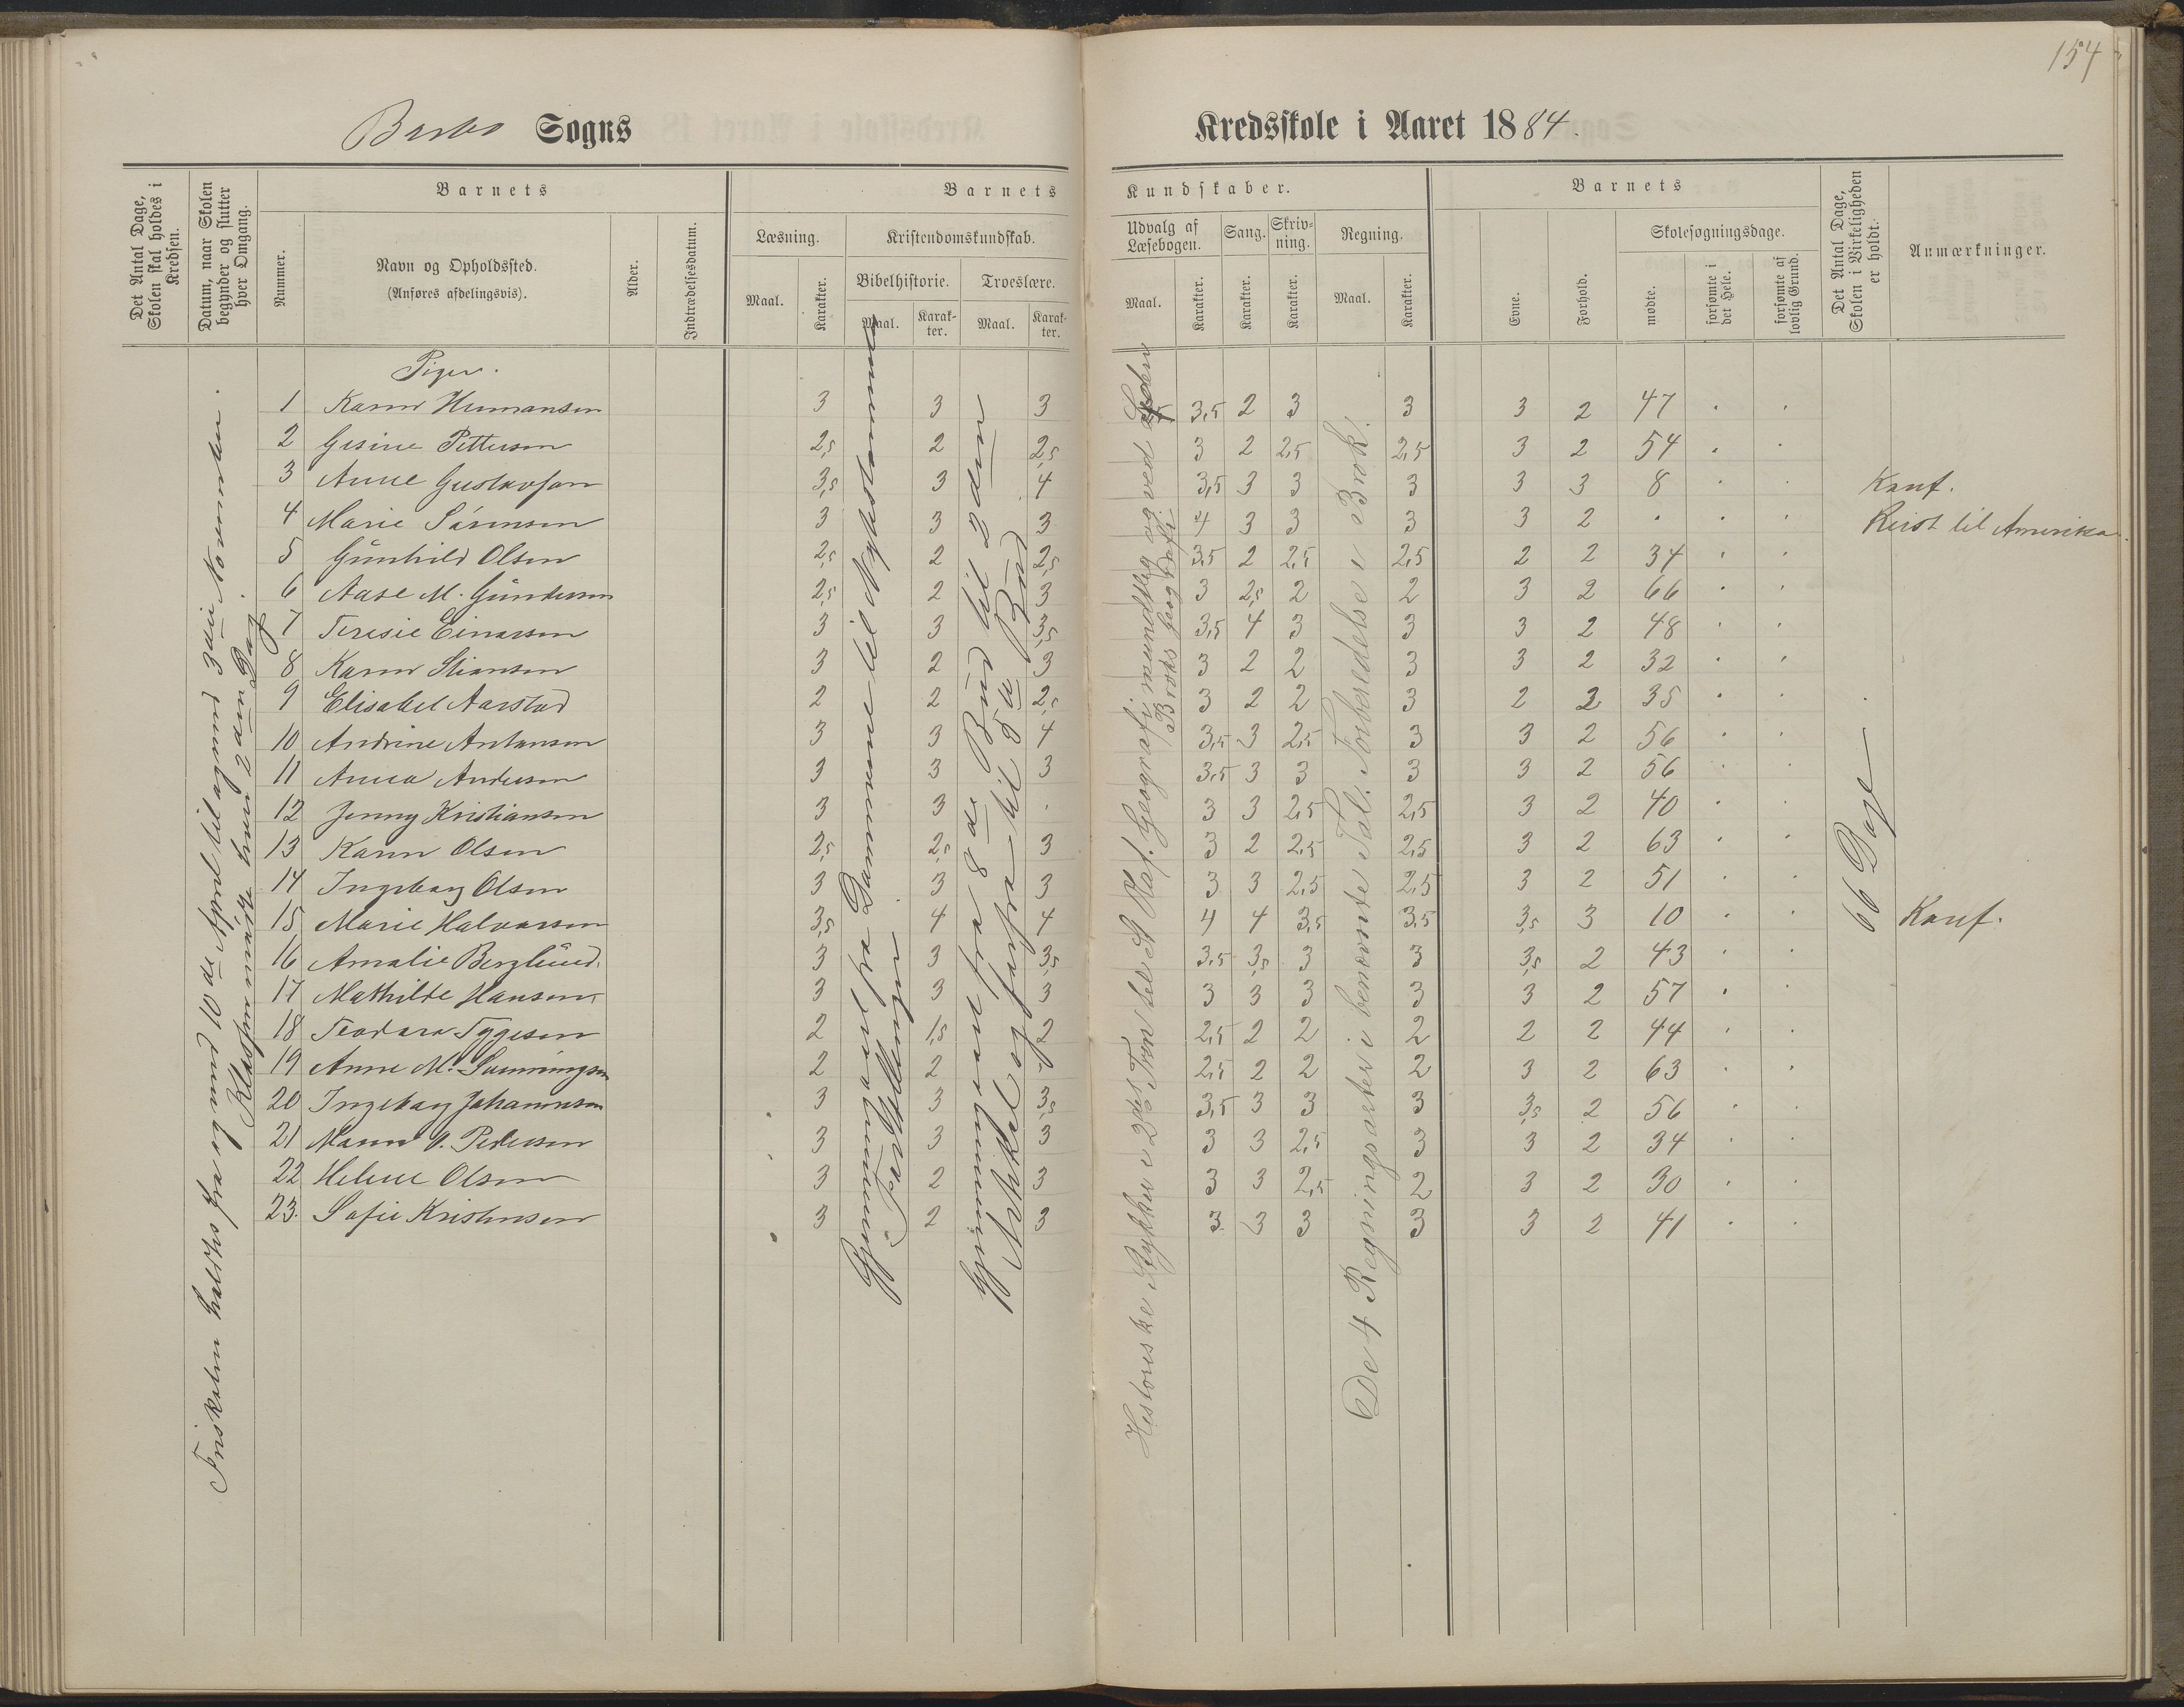 154
Barbo Sogns
Kredsskole i Aaret 1884.
Det Antal Dage, Skolen skal holdes i Kredsen.
Datum, naar Skolen begynder og slutter hver Omgang.
Nummer.
Barnets
Navn og Opholdssted.
(Anføres afdelingsvis).
Alder.
Indtrædelsesdatum.
Barnets
Læsning.
Maal.
Karakter.
Kristendomskundskab.
Bibelhistorie.
Troeslære.
Maal.
Karak-ter.
Maal.
Karak-ter.
Kundskaber.
Udvalg af Læsebogen.
Sang.
Skriv-ning.
Regning.
Maal.
Karakter.
Karakter.
Karakter.
Maal.
Karakter.
Barnets
Evne.
Forhold.
Skolesøgningsdage.
mødte.
forsømte i det Hele.
forsømte af lovlig Grund.
Det Antal Dage, Skolen i Virkeligheden er holdt.
Anmærkninger.
Piger.
1 Karen Hermansen 3 3 3 3,5 2 3 3 3 2 47 . .
2 Gesine Pettersen 2,5 2 2,5 3 2 2,5 2,5 3 2 54 . .
3 Anne Gustavsen 3,5 3 4 3,5 3 3 3 3 3 8 . . Konf.
4 Marie Sørensen 3 3 3 4 3 3 3 3 2 . . . Reist til Amerika.
5 Gunhild Olsen 2,5 2 2,5 3,5 2 2,5 2,5 2 2 34 . .
6 Aase M. Gundersen 2,5 2 3 3 2,5 2 2 3 2 66 . .
7 Teresie Einarsen 3 3 3,5 3,5 4 3 3 3 2 48 . .
8 Karen Stiansen 3 2 3 3 2 2 3 3 2 32 . .
9 Elisabet Aarstad 2 2 2,5 3 2 2 3 2 2 35 . .
10 Andrine Antonsen 3 3 4 3,5 3 2,5 3 3 2 56 . .
11 Anna Andersen 3 3 3 3,5 3 3 3 3 2 56 . .
12 Jenny Kristiansen 3 3 . 3 3 2,5 2,5 3 2 40 . .
13 Karen Olsen 2,5 2,5 3 3 2 2,5 2,5 3 2 63 . .
14 Ingeborg Olsen 3 3 3 3 3 2,5 2,5 3 2 51 . .
15 Marie Halvorsen 3,5 4 4 4 4 3,5 3,5 3,5 3 10 . . Konf.
16 Amalie Berglund. 3 3 3,5 3,5 3,5 3 3 3,5 2 43 . .
17 Mathilde Hansen. 3 3 3 3 3 3 3 3 2 57 . .
18 Teodara Tygesen 2 1,5 2 2,5 2 2 2 2 2 44 . .
19 Anne M. 2 2 . 2,5 2 2 2 3 2 63 . .
20 Ingeborg Johannesen 3 3 3,5 3,5 3 3 3 3,5 2 56 . .
21 Maren O. Pedersen 3 3 3 3 3 2,5 3 3 2 34 . .
22 Helene Olsen 3 2 3 3 3 2,5 2 3 2 30 . .
23. Sofie Kristensen 3 2 3 3 3 3 3 3 2 41 . .
Friskolen holdtes fra og med 10de April til og med 3die November.
Klassen møtte hver 2den Dag.
Gjennemgaaet fra Dommerne til Nytestamente
Fortællinger
Gjennemgaaet fra 8de Bud til 2den
Artikel og forfra til 5te Bud
Historiske Stykker i 2det Trin til St. Olaf. Geografi mundtlig og ved
Brocks Geografi.
De 4 Regningsarter i benævnte Tal. Forberedelse i Brøk.
66 Dage